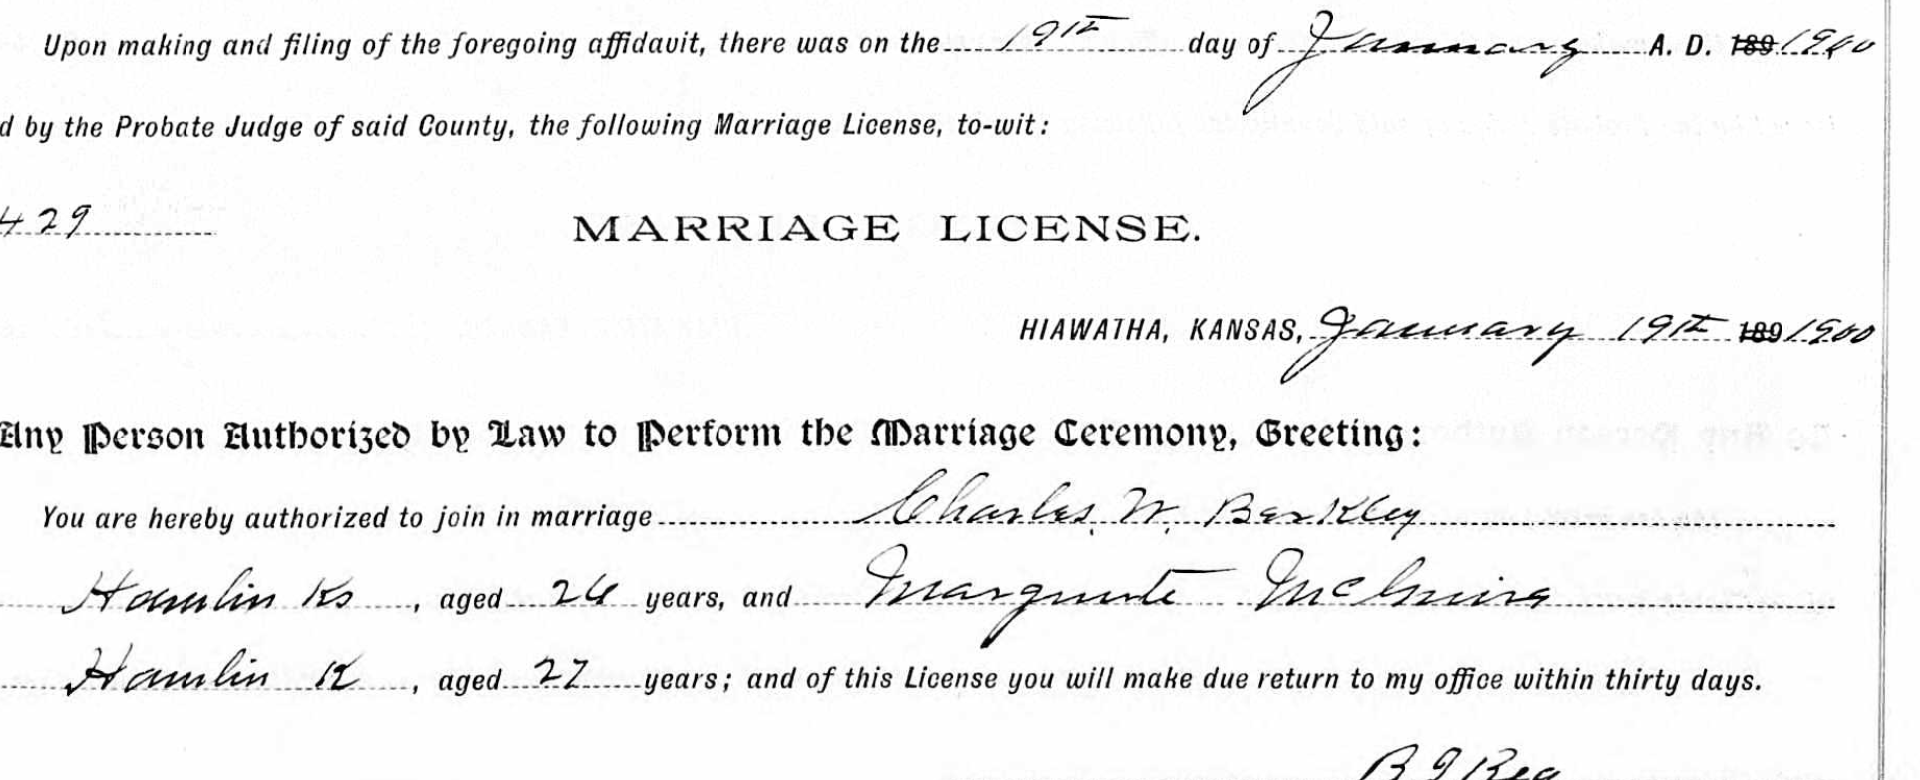 Upon making and filing of the foregoing affidavit, there was on the 19th day of January A. D. 189 1900
d by the Probate Judge of said County, the following Marriage License, to-wit:
429
MARRIAGE LICENSE.
HIAWATHA, KANSAS, January 19th 189 1900
Any Person Authorized by Law to Perform the Marriage Ceremony, Greeting:
You are hereby authorized to join in marriage Charles W. Barkley
Hamlin Ks, aged 26 years, and Marguerite McGuire
Hamlin K, aged 27 years; and of this License you will make due return to my office within thirty days.